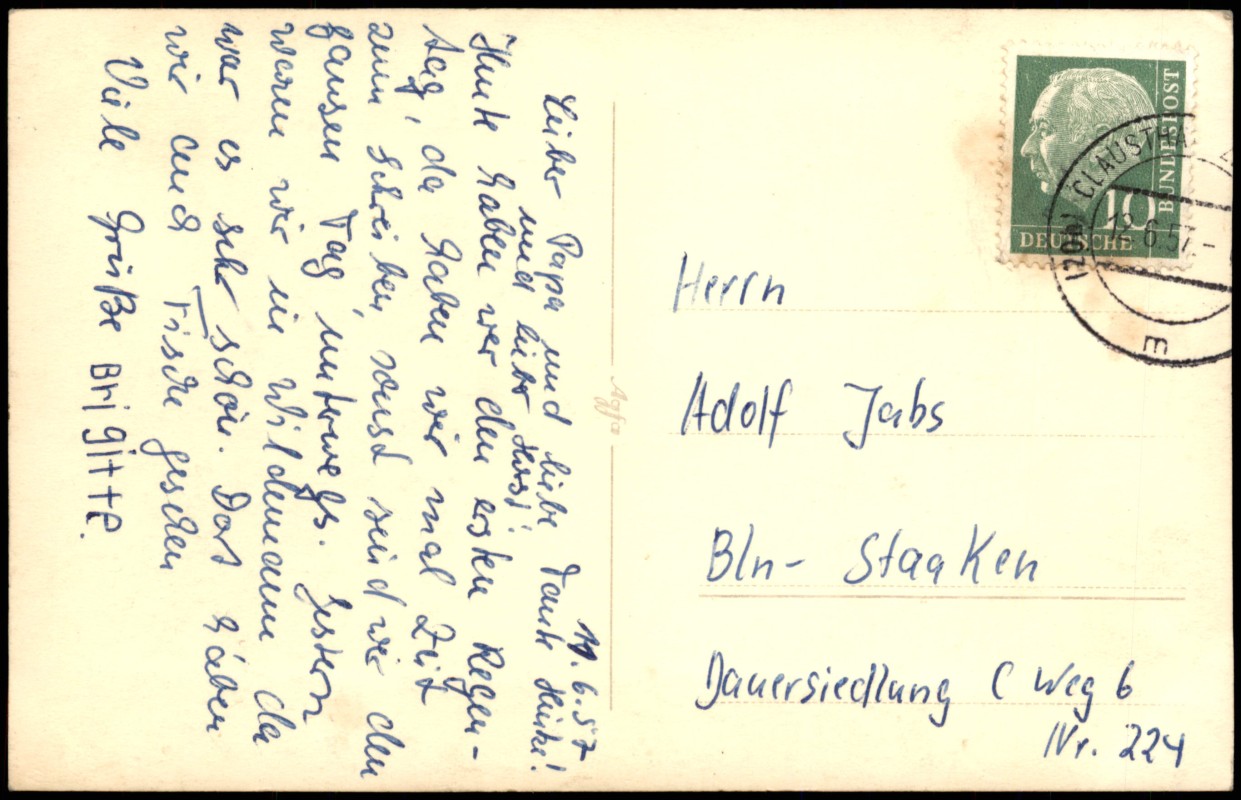 19.6.57
Lieber Papa und liebe Tante
und lieber
Heute haben wir den ersten Regen-
tag, da haben wir mal Zeit
zum schreiben, sonst sind wir den
ganzen Tag unterwegs. Gestern
waren wir in Wildemann da
war es sehr schön. Dort haben
wir auch Fische gesehen
Viele Grüße Brigitte.
Agfa
Herrn
Adolf Jabs
Bln- Staaken
Dauersiedlung C Weg 6
Nr. 224
BUNDESPOST
10
DEUTSCHE
(20b) CLAUSTHA
19.6.57-
m